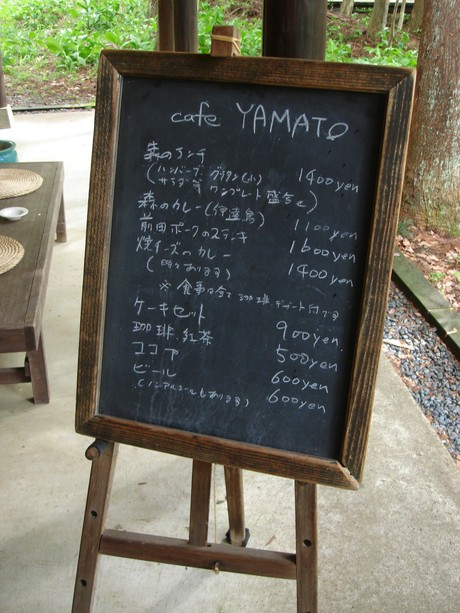 cafe YAMATO
森のランチ 1400yen
(ハンバーグ グラタン(小)
サラダ等 ワンプレート盛合せ)
森のカレー(伊達鶏) 1100yen
前田ポークのステーキ 1600yen
焼チーズのカレー 1400yen
(時々あります)
※食事は全て珈琲 デザート付です
ケーキセット 900yen
珈琲、紅茶 500yen
ココア 600yen
ビール 600yen
(ノンアルコールもあります)